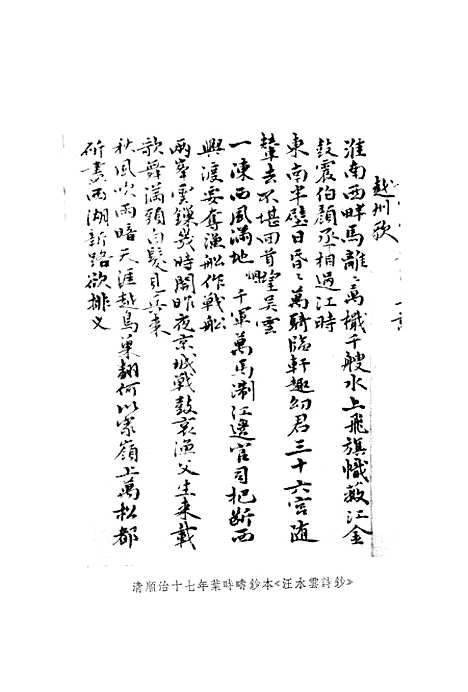 越州歌
淮南西畔馬離〻萬檝千艘水上飛旗幟蔽江金
鼓震伯顏丞相過江時
東南半壁日昏〻萬騎臨軒趣幼君三十六宮随
輦去不堪回首望吳雲
一陳西風滿地烟千軍萬馬淛江邊官司把斷西
興渡要奪漁船作戰船
兩峯雲鏁幾時開昨夜京城戰鼓哀漁父生来載
歌舞滿頭白髮見兵来
秋風吹雨暗天涯越鳥巢翻何以家嶺上萬松都
斫盡西湖新路欲排义
清順治十七年葉時疇鈔本《汪水雲詩鈔》